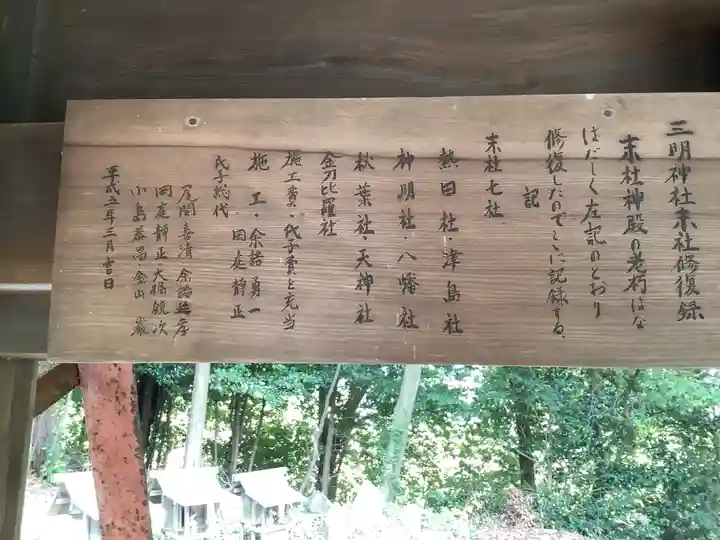 三明神社末社修復録
末社神殿の老朽はな
はだしく左記のとおり
修復したのでここに記録する、
記
末社七社
熱田社・津島社
神明社・八幡社
秋葉社・天神社
金刀比羅社
施工費、氏子費を充当
施工・余語勇一
・岡庭静正
氏子総代
尾関喜清
岡庭静正・大橋鏡次
小島・金山巌
平成五年三月吉日